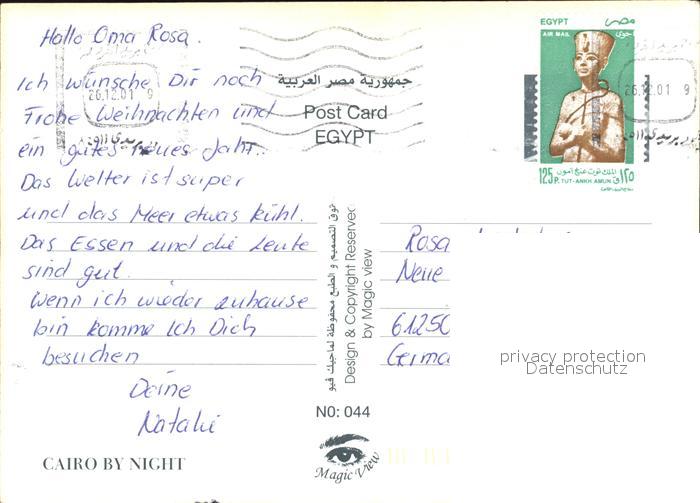 Hallo Oma Rosa.
Ich wünsche Dir noch
Frohe Weihnachten und
ein gutes neues Jahr.
Das Wetter ist super
und das Meer etwas kühl.
Das Essen und die Leute
sind gut.
Wenn ich wieder zuhause
bin komme Ich Dich
besuchen
Deine
Natalie
CAIRO BY NIGHT
جمهورية مصر العربية
Post Card
EGYPT
حقوق التصميم و الطبع محفوظة لماجيك فيو
Design & Copyright Reserved
by Magic view
NO: 044
Magic View
EGYPT مصر
AIR MAIL جوى
الملك توت عنخ آمون
125 P. TUT-ANKH AMUN ق ١٢٥
26.12.01 9
26.12.01 9
Rosa
Neue
61250
Germa
privacy protection
Datenschutz